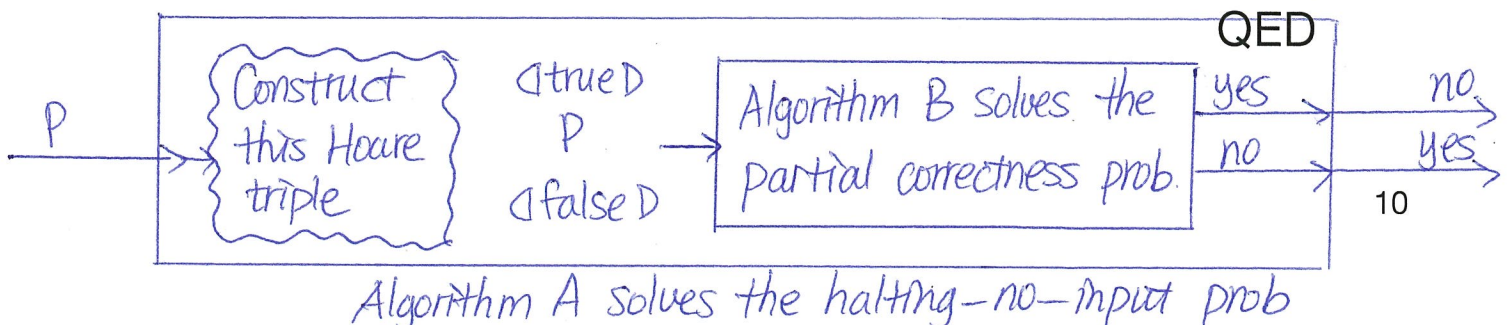 QED
P
Construct
this Hoare
triple
⦇true⦈
P
⦇false⦈
Algorithm B solves the
partial correctness prob.
yes
no
no
yes
10
Algorithm A solves the halting-no-input prob